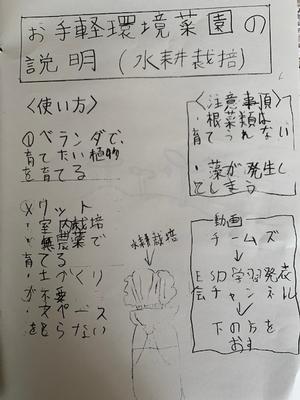 お手軽環境菜園の
説明(水耕栽培)
〈使い方〉
①ベランダで、
育てたい植物
を育てる
メリット
室内栽培
無農薬で
育てる
土づくり
が不要
スペース
をとらない
水耕栽培
〈注意事項〉
・根菜類は
育てられない
・藻が発生し
てしまう
動画
チームズ
↓
ESD学習発表
会チャンネル
↓
下の方を
おす